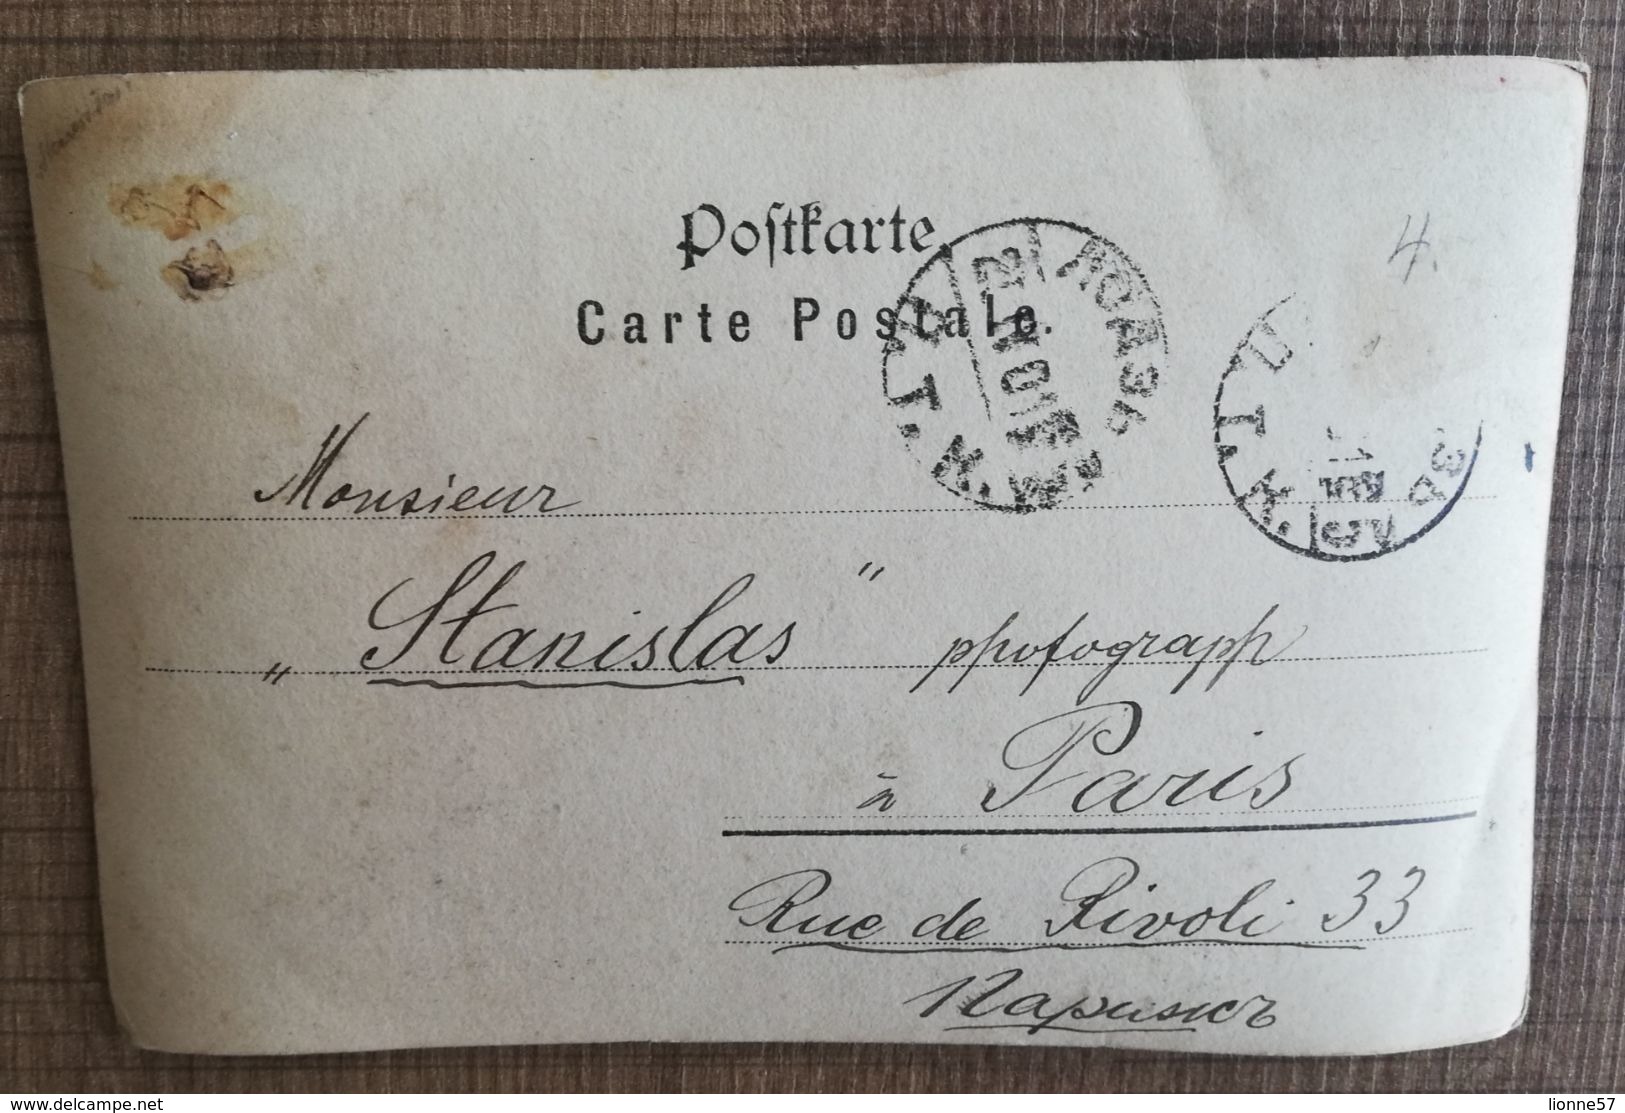 Postkarte
Carte Postale.
П.Т.К.
КОЛДЗЬ
П.Т.К.
4.
Monsieur
„Stanislas" phfotograph
à Paris
Rue de Rivoli 33
Парижъ
delcampe.net
lionne57